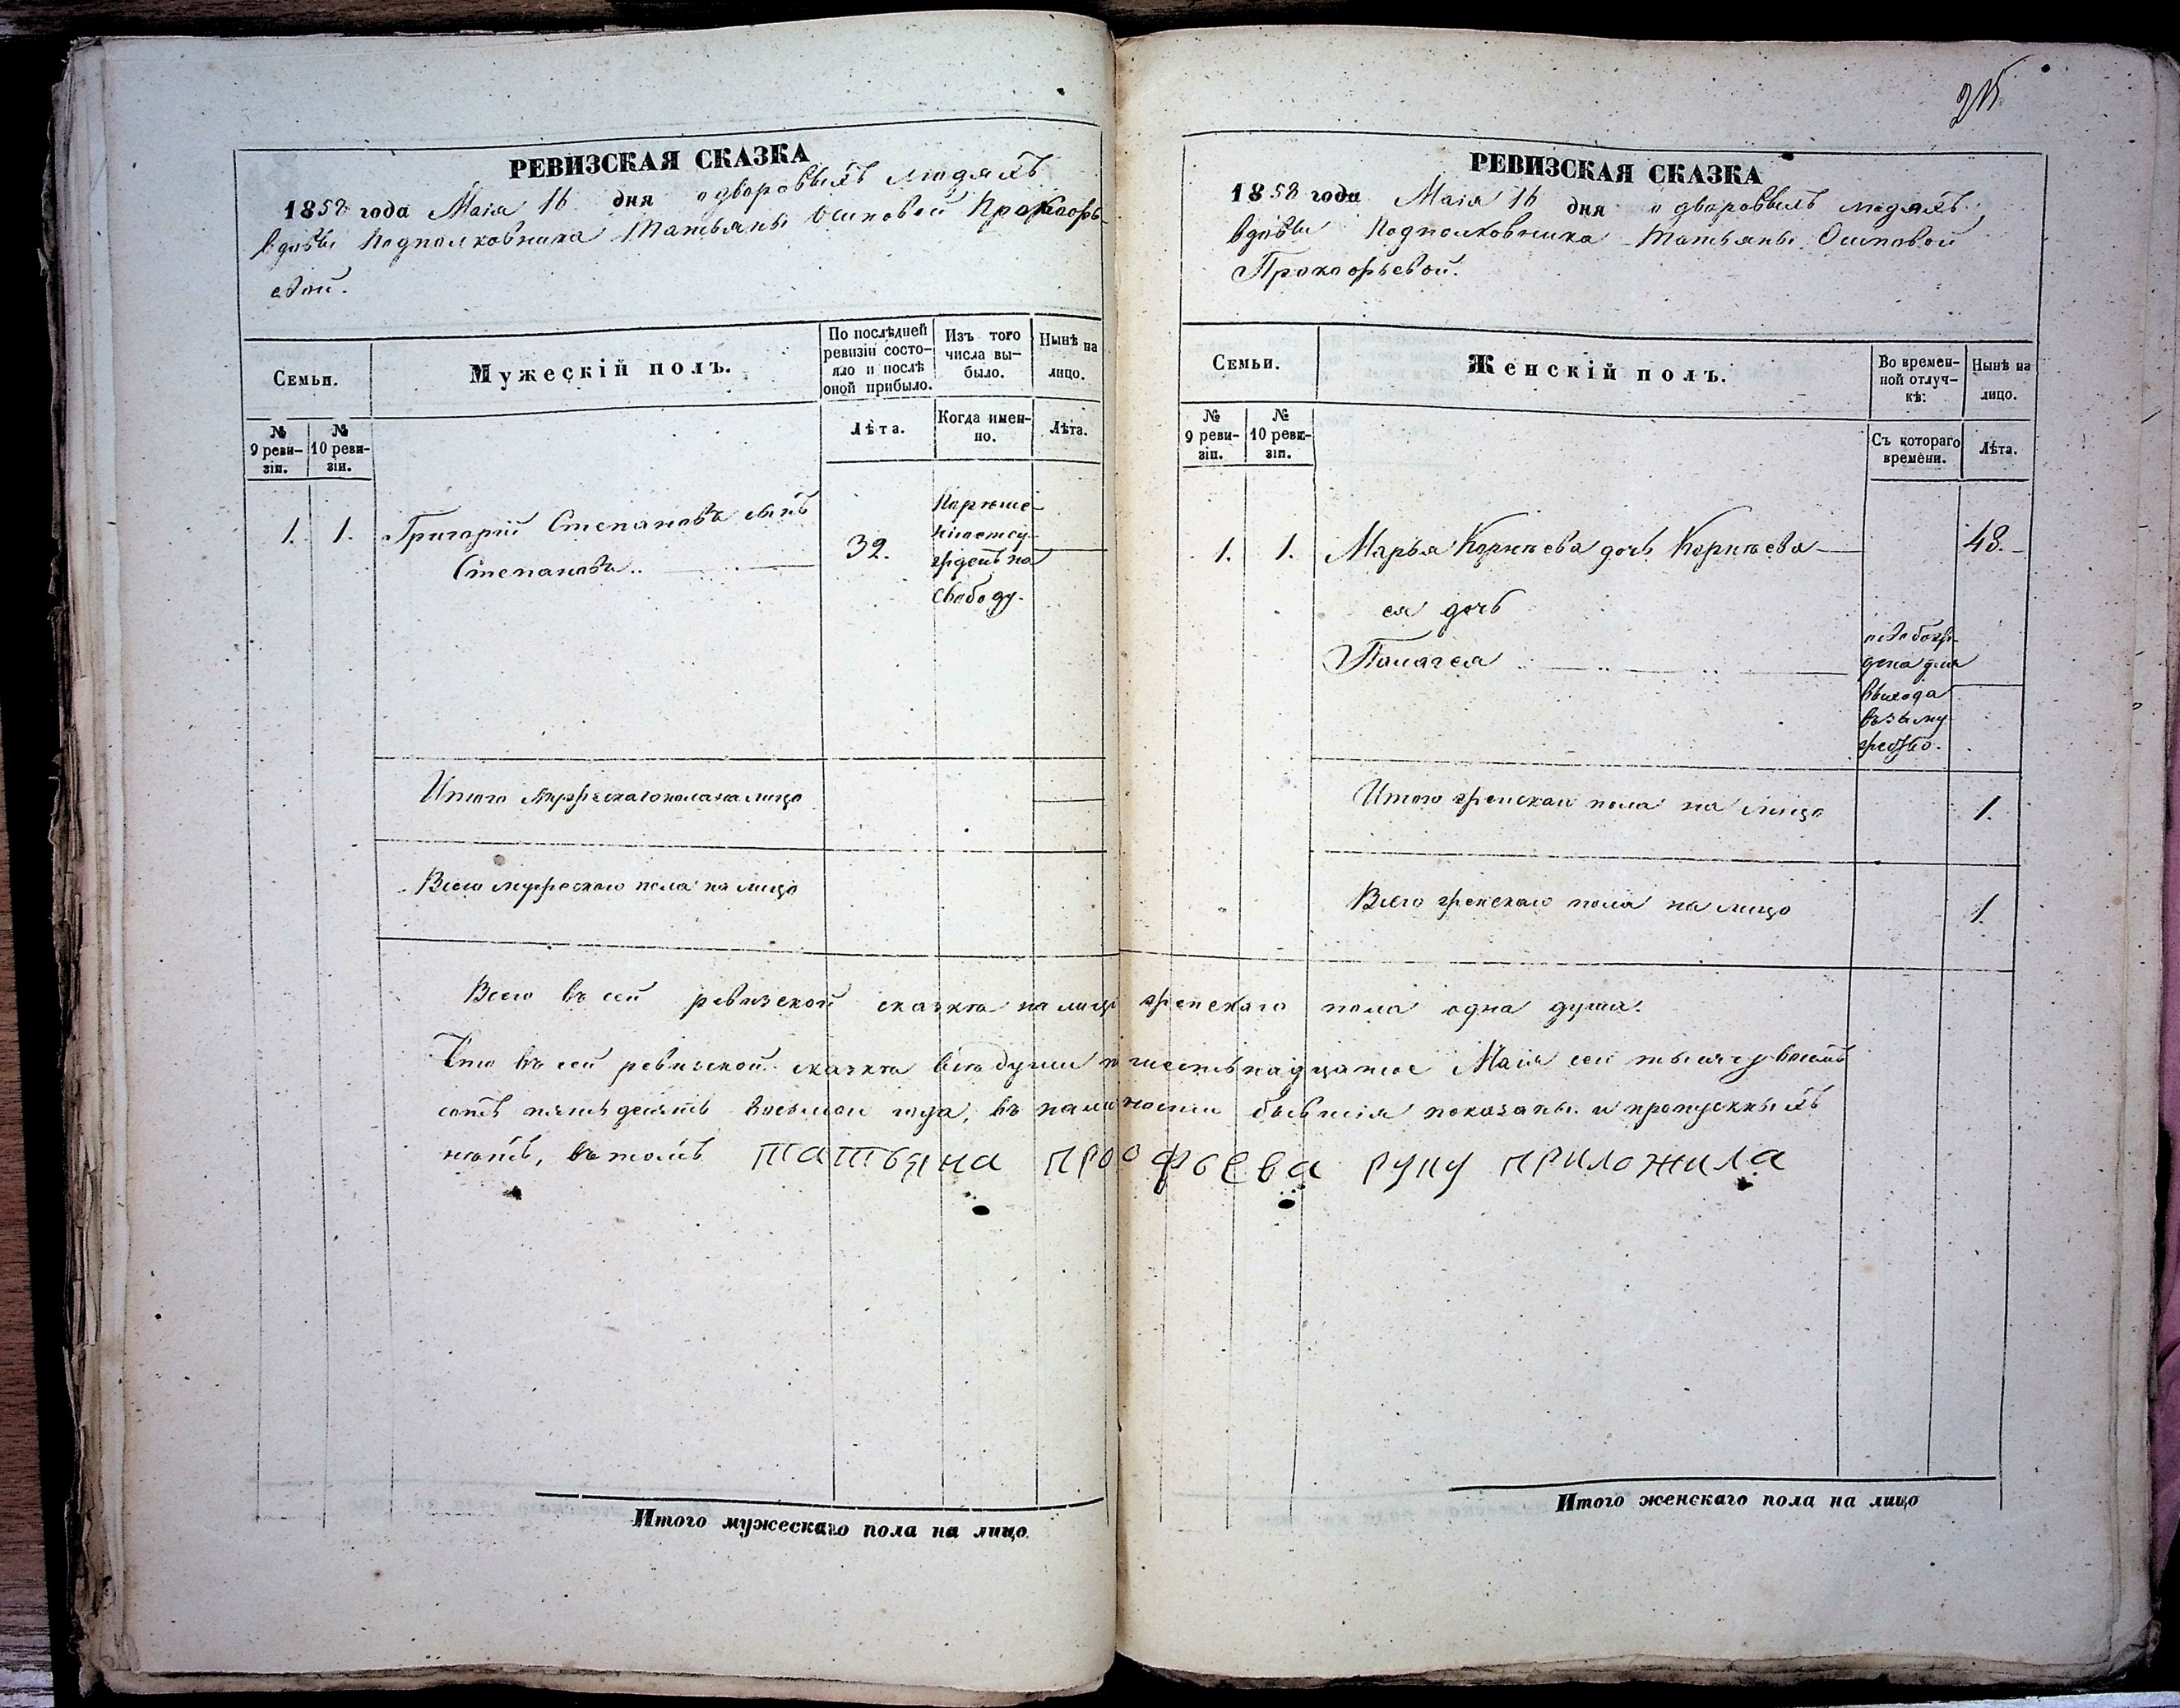 РЕВИЗСКАЯ СКАЗКА
1858 года Маія 16 дня о дворовыхъ людяхъ
вдовы Подполковника Татьяны Осиповой Прокофь-
евой.
Семьи.
Мужескій полъ.
По послѣдней ревизіи состо-
яло и послѣ
оной прибыло.
Изъ того
числа вы-
было.
Нынѣ на
лицо.
№
9 реви-
зіи.
№
10 реви-
зіи.
Лѣта.
Когда имен-
но.
Лѣта.
1. 1. Григорій Степановъ сынъ
Степановъ.
32.
свободу.
Итого мужескаго пола на лицо
Всего мужескаго пола на лицо
Итого мужескаго пола на лицо
25
РЕВИЗСКАЯ СКАЗКА
1858 года Маія 16 дня о дворовыхъ людяхъ,
вдовы Подполковника Татьяны Осиповой
Прокофьевой.
Семьи.
Женскій полъ.
Во времен-
ной отлуч-
кѣ:
Нынѣ на
лицо.
№
9 реви-
зіи.
№
10 реви-
зіи.
Съ котораго
времени.
Лѣта.
1. 1. Марья Корнѣева дочь Корнѣева 48.
ея дочь
Палагея
дена для
выхода
въ заму
жество.
Итого женскаго пола на лицо 1.
Всего женскаго пола на лицо 1.
Всего въ сей ревизской сказкѣ на лицо женскаго пола одна душа.
Что въ сей ревизской сказкѣ всѣ души по шестьнадцатое Маія сей тысяча восемь
сотъ пятьдесятъ восьмого года, въ наличности бывшія показаны и пропускныхъ
нѣтъ, въ томъ татьяна прокофьева руку приложила
Итого женскаго пола на лицо